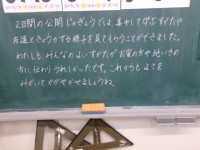 2日間の公開じゅぎょうでは集中して学ぶすがたや
友達ときょうカする様子を見てもらうことができました。
わたしも みんなのよいすがたが お家の方や地いきの
方に伝わり うれしかったです。これからも よさを
みがいて かがやかせましょうね